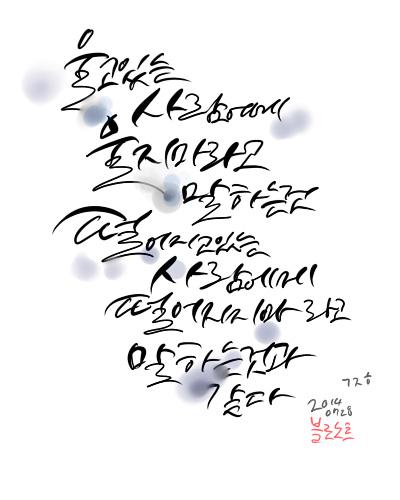 울고있는
사람에게
울지마라고
말하는건
떨어지고있는
사람에게
떨어지지마라고
말하는것과
같다
ㄱㅈㅎ
2014
07 28
블루노트